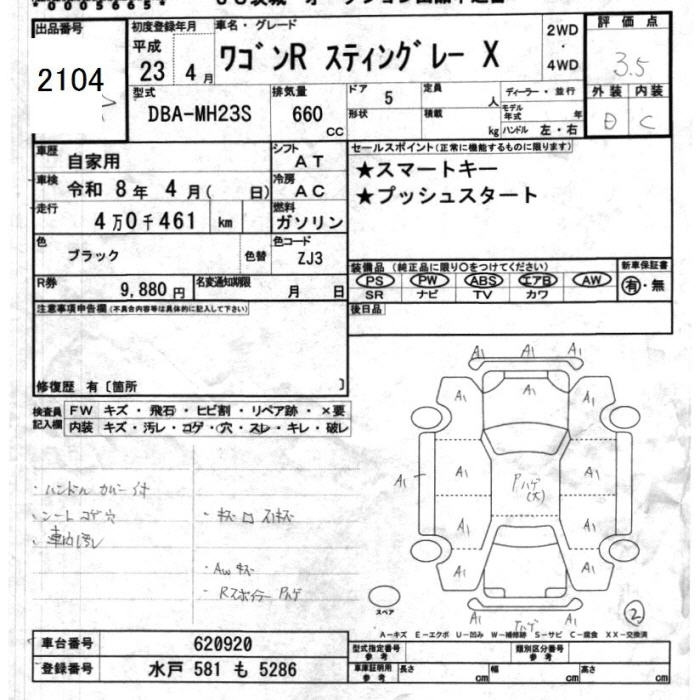 0005665
出品番号
2104
初度登録年月
平成
23 4 月
車名・グレード
ワゴンR スティングレー X
2WD
・
4WD
評価点
3.5
外装 内装
D C
型式
DBA-MH23S
排気量
660
CC
ドア
5
定員
人
形状
積載
kg
ディーラー・並行
モデル年式
年
ハンドル 左・右
車歴
自家用
シフト
AT
車検
令和 8年 4月( 日)
冷房
AC
走行
4万0千461 km
燃料
ガソリン
色
ブラック
色替
色コード
ZJ3
R券
9,880 円
名変通知期限
月 日
セールスポイント(正常に機能するものに限ります)
★スマートキー
★プッシュスタート
装備品 (純正品に限り○をつけてください)
PS PW ABS エアB AW
SR ナビ TV カワ
新車保証書
有・無
後日品
注意事項申告欄(不具合内容等は具体的に記入して下さい)
修復歴 有〔箇所 〕
検査員
記入欄
FW キズ・飛石・ヒビ割・リペア跡・×要
内装 キズ・汚レ・コゲ・穴・スレ・キレ・破レ
・ハンドル カバー付
・シートコゲ穴
・車内汚レ
・キズ
・AW キズ
・Rスポイラー Pハゲ
A1 A1 A1
A1 A1 A1
A1 A1 Pハゲ(大) A1
A1 A1
A1 A1
A1 Pハゲ A1
スペア
2
A-キズ E-エクボ U-凹み W-補修跡 S-サビ C-腐食 XX-交換済
車台番号
620920
登録番号
水戸 581 も 5286
型式指定番号
参考
類別区分番号
参考
車庫証明用
参考
長さ cm 幅 cm 高さ cm